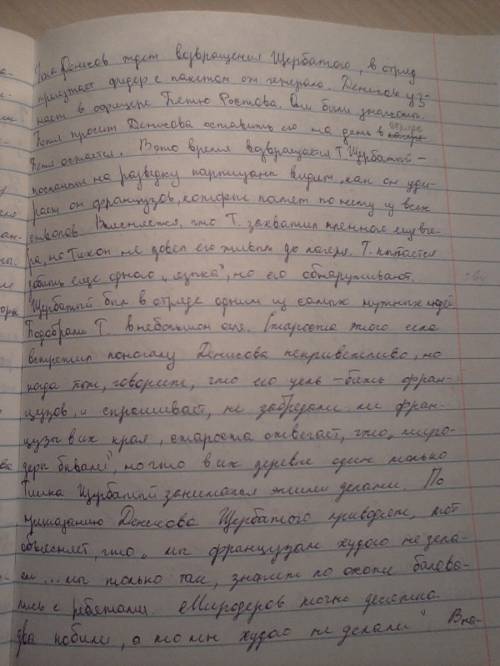 Пока Денисов ждет возвращения Щербатого, в отряд
приезжает офицер с пакетом от генерала. Денисов уз-
нает в офицере Петю Ростова. Они были знакомы.
Петя просит Денисова оставить его на день в отряде
Петя остается. В это время возвращался Т. Щербатый –
посланные на разведку партизаны видят, как он уди-
рает от французов, которые палят по нему из всех
стволов. Выясняется, что Т. захватил пленного еще вче-
ра, но Тихон не довел его живым до лагеря. Т. пытается
добыть еще одного „языка", но его обнаруживают.
Щербатый был в отряде одним из самых нужных людей
Подобрали Т. в небольшом селе. Староста этого села
встретил поначалу Денисова неприветливо, но
когда тот, говорит, что его цель – бить фран-
цузов, и спрашивает, не забредали ли фран-
цузы в их края, староста отвечает, что „миро-
деры бывали", но что в их деревне один только
Тишка Щербатый занимался этими делами. По
приказанию Денисова Щербатого приводят, тот
объясняет, что „мы французам худого не дела-
ем... мы только так, значит по охоте балова-
лись с ребятами. Миродеров точно десятка
два побили, а то мы худого не делали" Вна-